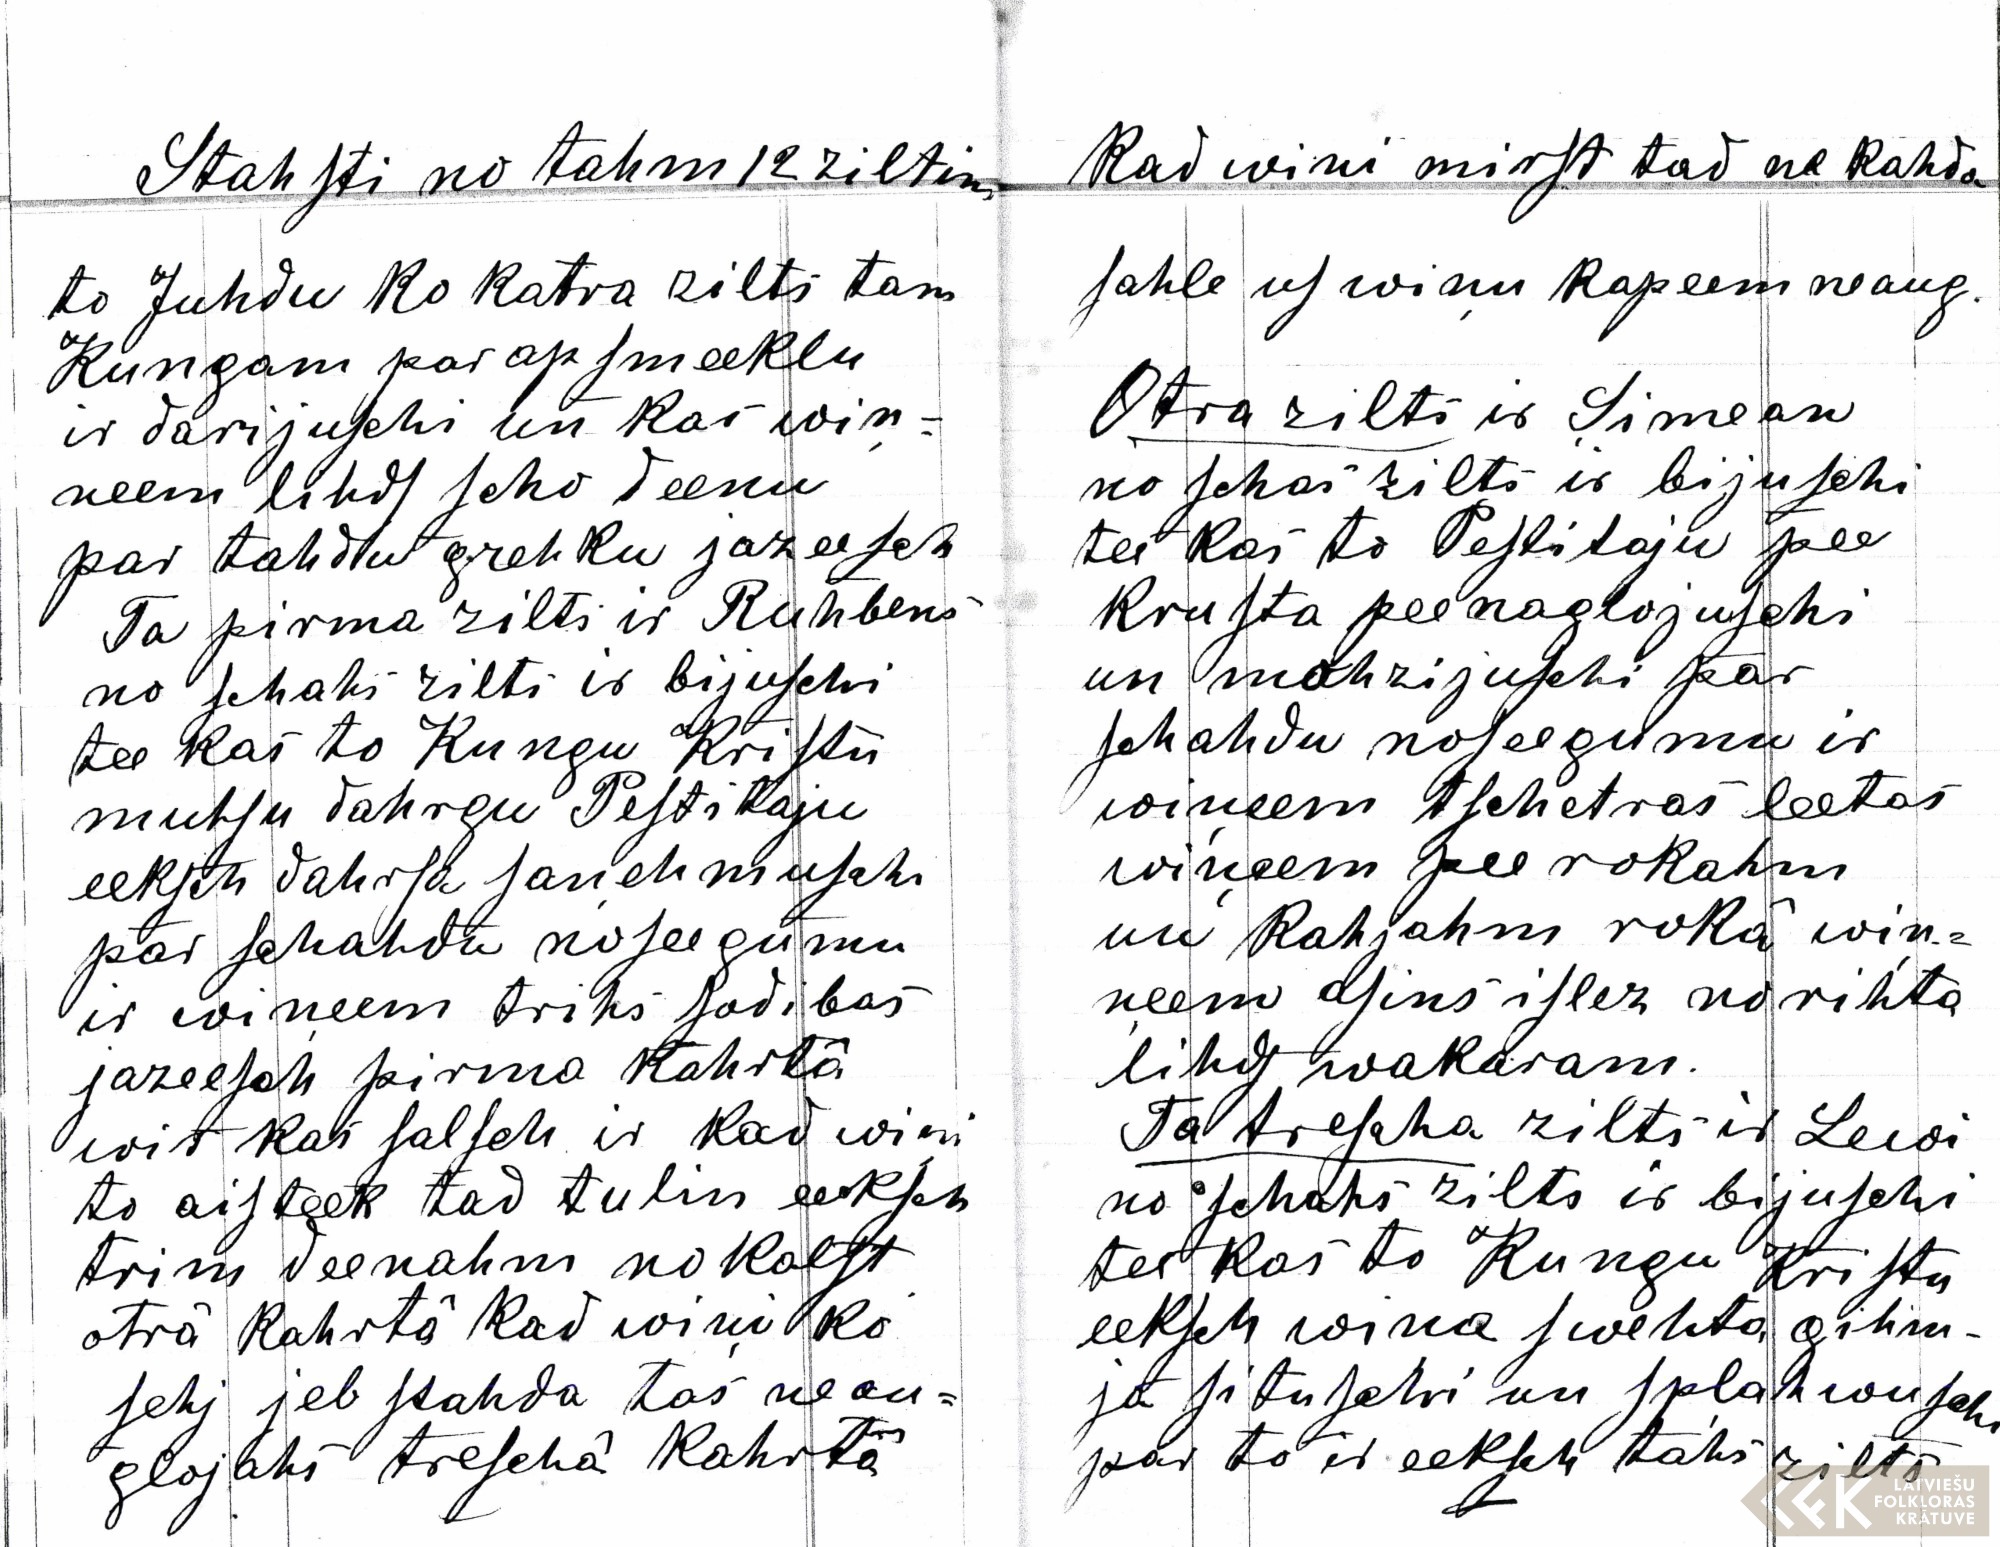 Stahsti no tahm 12 ziltim
to Juhdu ko katra zilts tam
Kungam par apsmeeklu
ir darijuschi un kas win=
neem lihds scho deenu
par tahdu grehku jazeesch
Ta pirma zilts ir Ruhbens
no schahs zilts ir bijuschi
tee kas to Kungu Kristu
muhsu dahrgu Pestitaju
eeksch dahrsa saņehmusch
par schahdu noseegumu
ir wiņeem trihs sodibas
jazeesch pirma kahrtâ
wis kas salsch ir kad wiņi
to aisteek tad tulin eeksch
trim deenahm nokalst
otrâ kahrtâ kad wiņi ko
sehj jeb stahda tas neau=
glojahs treschâ kahrtâ
Kad wini mirst tad ne kahda
sahle us wiņu kapeem neaug.
Otra zilts ir Simean
no schas zilts ir bijuschi
tee kas to Pestitaju pee
krusta peenaglojuschi
un mohzijuschi par
schahdu noseegumu ir
wiņeem tschetras leetas
wiņeem pee rokahm
un kahjahm rokâ wiņ=
ņeem asins islez no rihta
lihds wakaram.
Ta trescha zilts ir Lewi
no schahs zilts ir bijuschi
tee kas to Kungu Kristu
eeksch wina swehta gihm-
ja situschi un splahwusch
par to ir eeksch tahs zilts
LATVIEŠU
FOLKLORAS
KRĀTUVE